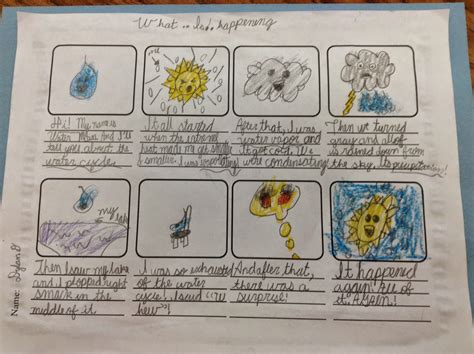 What happening
me
Hi! My name is
Water and I'll
tell you about the
water cycle.
It all started
when the
heat made me get smaller
& smaller. I was evaporating
After that, I was
water vapor and
it got cold. We
were condensating
Then we turned
gray and all of
us rained down from
the sky. Its precipitating!
my lake
Then I saw my lake
and I plopped right
smack in the
middle of it.
I was so exhausted
of the water
cycle! I said
hew"!
And after that,
there was a
surprise!
It happened
again! All of
it. Again!
Name: Dylan